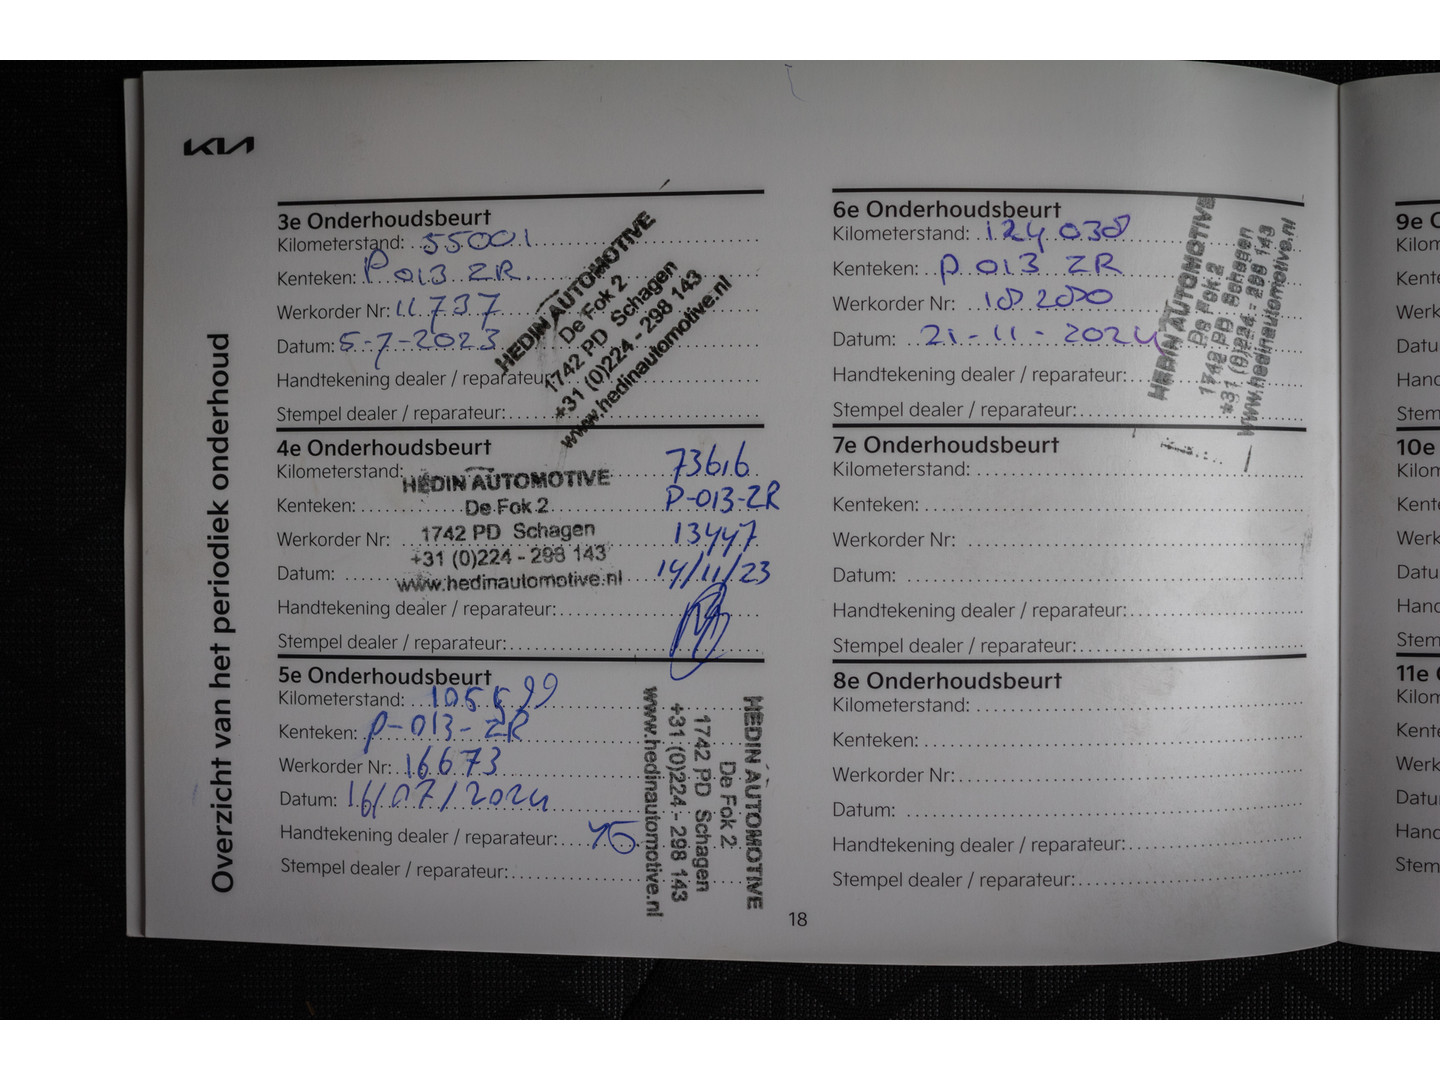 KIA
Overzicht van het periodiek onderhoud
3e Onderhoudsbeurt
Kilometerstand: 55001
Kenteken: P 013 ZR
Werkorder Nr: 11737
Datum: 5-7-2023
Handtekening dealer / reparateur
Stempel dealer / reparateur:
HEDIN AUTOMOTIVE
De Fok 2
1742 PD Schagen
+31 (0)224 - 298 143
www.hedinautomotive.nl
4e Onderhoudsbeurt
Kilometerstand: 73616
Kenteken: P-013-ZR
Werkorder Nr: 13447
Datum: 14/11/23
Handtekening dealer / reparateur:
Stempel dealer / reparateur:
HEDIN AUTOMOTIVE
De Fok 2
1742 PD Schagen
+31 (0)224 - 298 143
www.hedinautomotive.nl
5e Onderhoudsbeurt
Kilometerstand: 105599
Kenteken: P-013-ZR
Werkorder Nr: 16673
Datum: 16/07/2024
Handtekening dealer / reparateur:
Stempel dealer / reparateur:
HEDIN AUTOMOTIVE
De Fok 2
1742 PD Schagen
+31 (0)224 - 298 143
www.hedinautomotive.nl
6e Onderhoudsbeurt
Kilometerstand: 124 038
Kenteken: P 013 ZR
Werkorder Nr:
Datum: 21-11-2024
Handtekening dealer / reparateur:
Stempel dealer / reparateur:
HEDIN AUTOMOTIVE
De Fok 2
1742 PD Schagen
+31 (0)224 - 298 143
www.hedinautomotive.nl
7e Onderhoudsbeurt
Kilometerstand:
Kenteken:
Werkorder Nr:
Datum:
Handtekening dealer / reparateur:
Stempel dealer / reparateur:
8e Onderhoudsbeurt
Kilometerstand:
Kenteken:
Werkorder Nr:
Datum:
Handtekening dealer / reparateur:
Stempel dealer / reparateur:
18
9e
Kilom
Kente
Werk
Datu
Hand
Stem
10e
Kilom
Kent
Werk
Datu
Hand
Stem
11e
Kilom
Kente
Werk
Datu
Hand
Stem